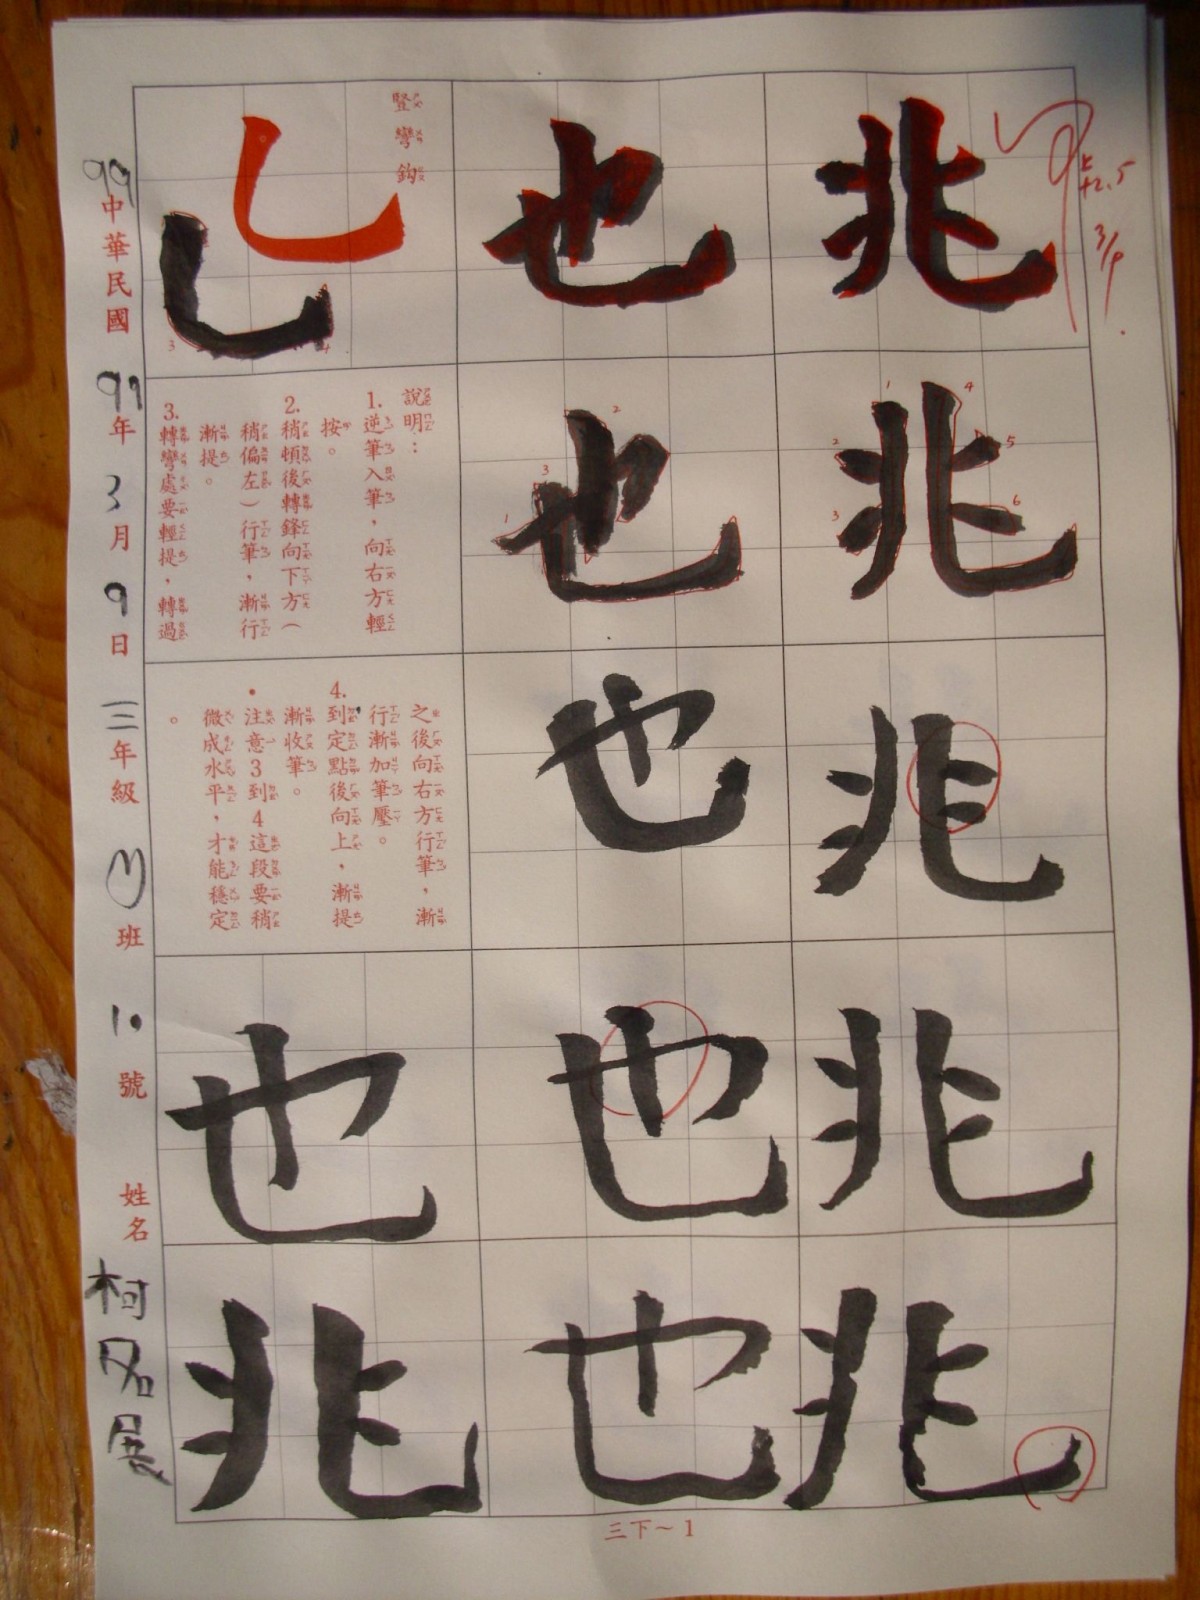 兆
兆
兆
兆
兆
也
也
也
也
也
豎彎鈎
說明：
1.逆筆入筆，向右方輕
按。
2.稍頓後轉鋒向下方（
稍偏左）行筆，漸行
漸提。
3.轉彎處要輕提，轉過
之後向右方行筆，漸
行漸加筆壓。
4.到定點後向上，漸提
漸收筆。
•注意3到4這段要稍
微成水平，才能穩定
。
也
兆
99中華民國99年3月9日三年級(1)班10號 姓名柯名展
上+2.5
3/9.
三下~1